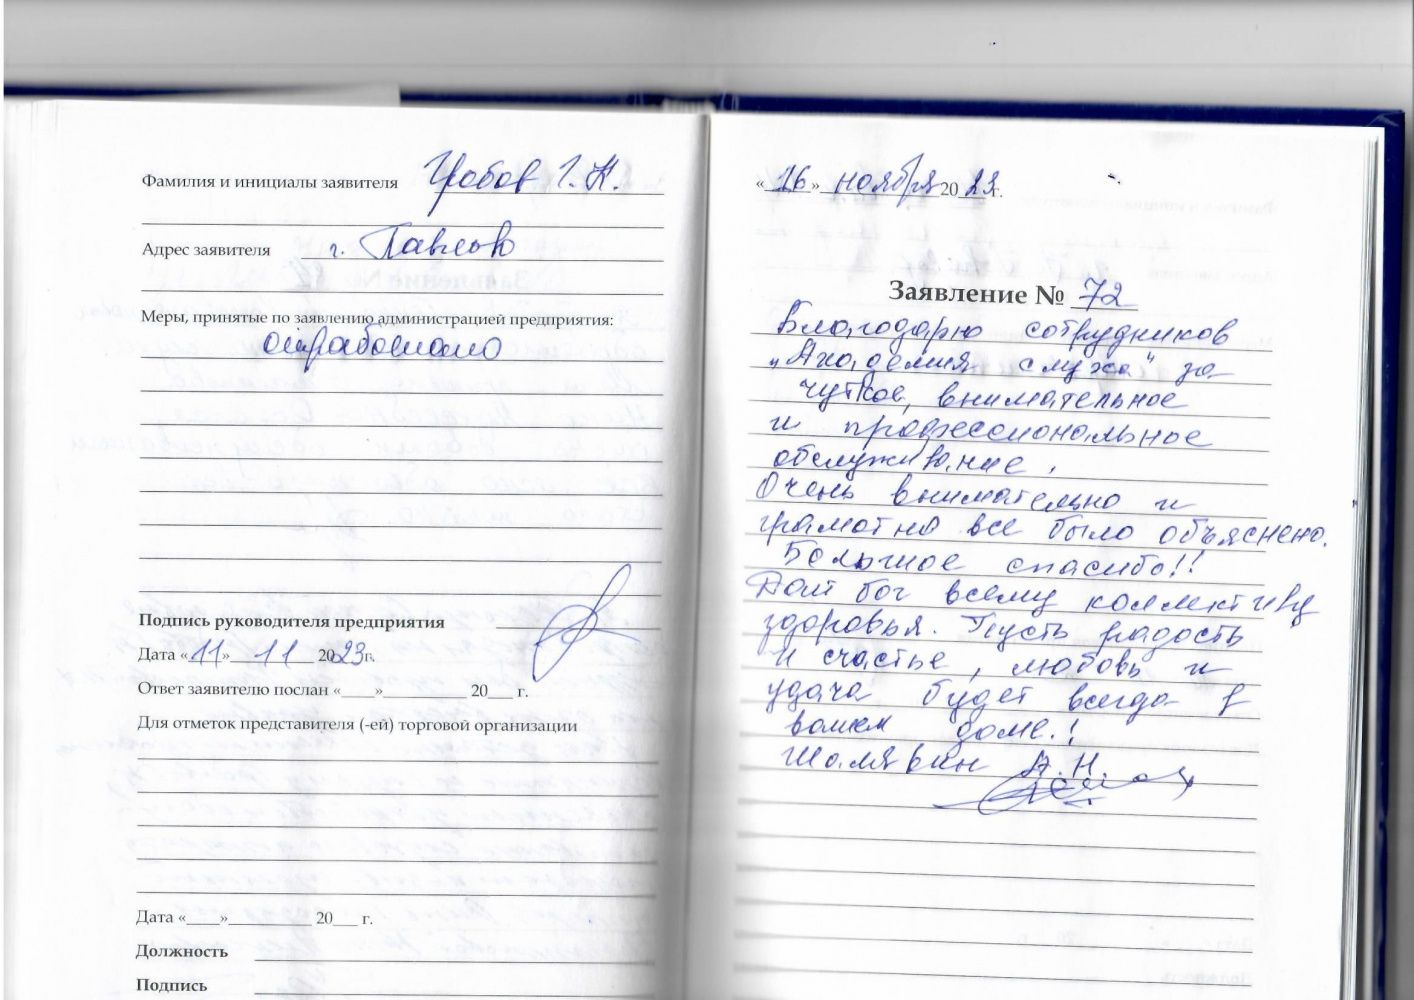 Фамилия и инициалы заявителя Гробов Г.Н.
Адрес заявителя г. Павлово
Меры, принятые по заявлению администрацией предприятия:
отработано
Подпись руководителя предприятия
Дата «11» 11 2023г.
Ответ заявителю послан «____»__________ 20___ г.
Для отметок представителя (-ей) торговой организации
Дата «____»__________ 20___ г.
Должность
Подпись
«16» ноября 2023г.
Заявление № 72
Благодарю сотрудников
"Академия слуха" за
чуткое, внимательное
и профессиональное
обслуживание.
Очень внимательно и
грамотно все было объяснено.
Большое спасибо!!
Дай бог всему коллективу
здоровья. Пусть радость
и счастье, любовь и
удача будет всегда в
вашем доме.!
Шалявин А.Н.